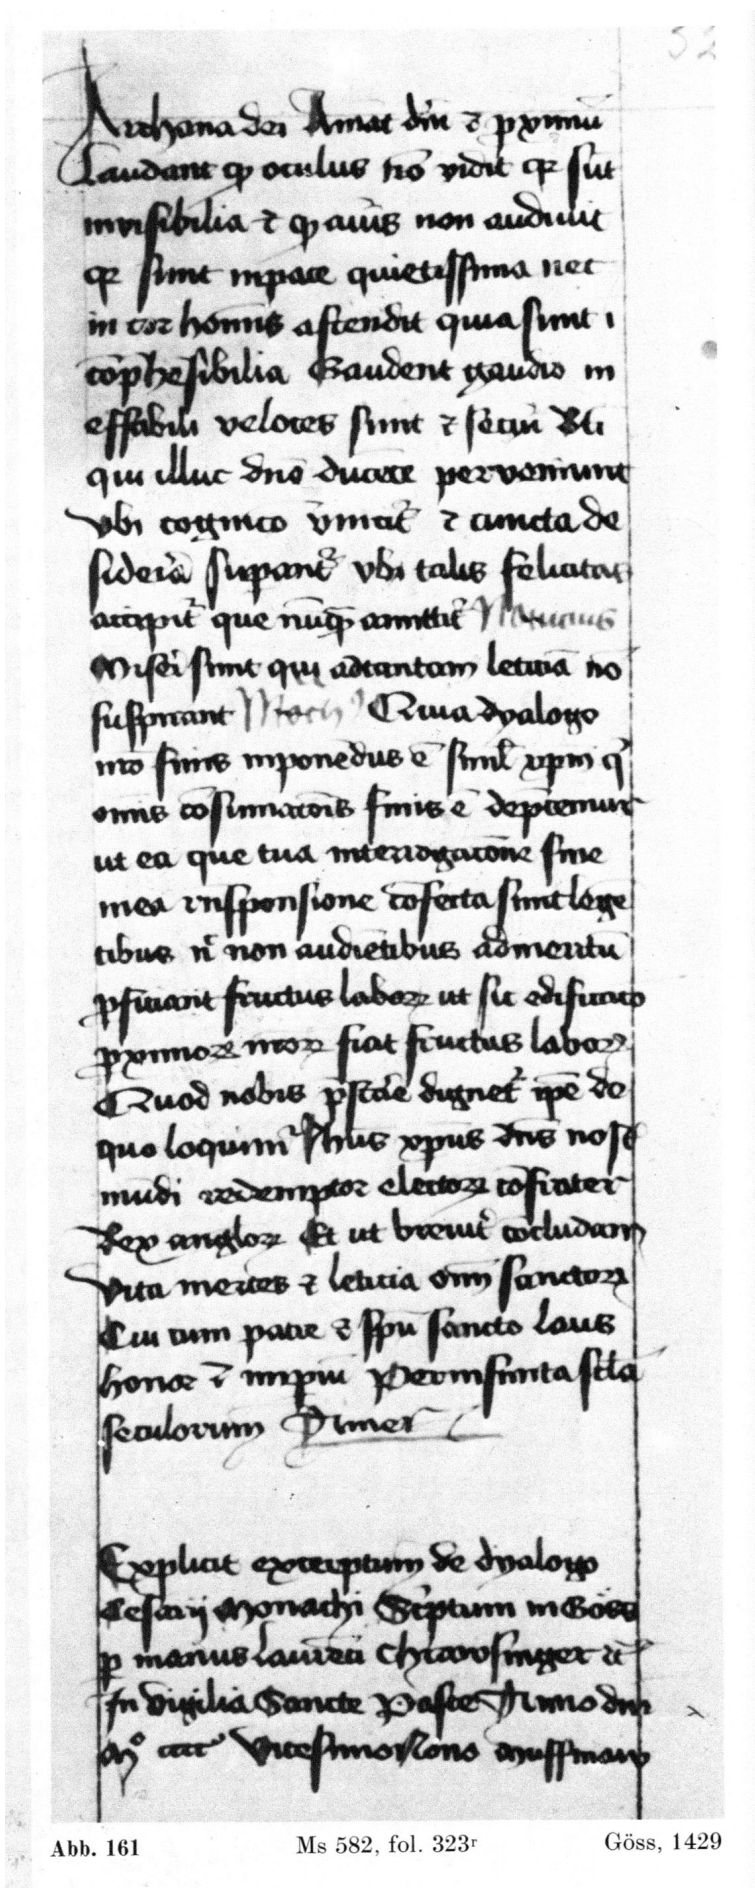 52
Archana dei Amāt dm̄ ⁊ pximū
Laudant qꝫ oculus nō vidit qꝛ sūt
invisibilia ⁊ qꝫ auris non audiuit
qꝛ sunt inpace quietissima nec
in cor homīs ascendit quia sunt ī
cōp̄hēsibilia Gaudent gaudio in
effabili veloces sunt ⁊ secūi Bt̄i
qui illuc dn̄o ducēte perveniunt
vbi cognico vīncit᷑ ⁊ cuncta de
siderā supant᷑ vbi talis felicitas
accipit᷑ que nūqꝫ amittit᷑ Nouicius
Miseri sunt qui adtantam leticiā nō
suspirant Moch9 Quia dyalogo
nr̄o finis inponēdus ē simul xpm̄ qͥ
omīs cōsumacōis finis ē dep̄cemur
ut ea que tua interrogacōne sine
mea rn̄sponsione cōfecta sunt lege
tibus ul̓ non audiētibus admeritū
ꝓficiant fructus laboꝝ ut sic edificaco
ꝓximoꝝ nr̄oꝝ fiat fructus laboꝝ
Quod nobis p̄stāe dignet᷑ ip̄e de
quo loquim᷑ Ihus xp̄us dn̄s nost᷑
mūdi redemptor electoꝝ cōfrater
Rex angloꝝ Et ut breuit᷑ cōcludam
vita merces ⁊ leticia om̄ sanctoꝝ
Cui cum patre ⁊ sp̄u sancto laus
honor ⁊ imp̄iū Perinfinita scl̄ā
seculorum Amen
Explicit excerptum de dyalogo
Cesarij Monachi Sc̓ptum in Göss
ꝑ manus Laurēcii ꝛc̄
In vigilia Sancte Pasce Anno dm̄
Mo cccc Vicesimo Nono
Abb. 161 Ms 582, fol. 323r Göss, 1429